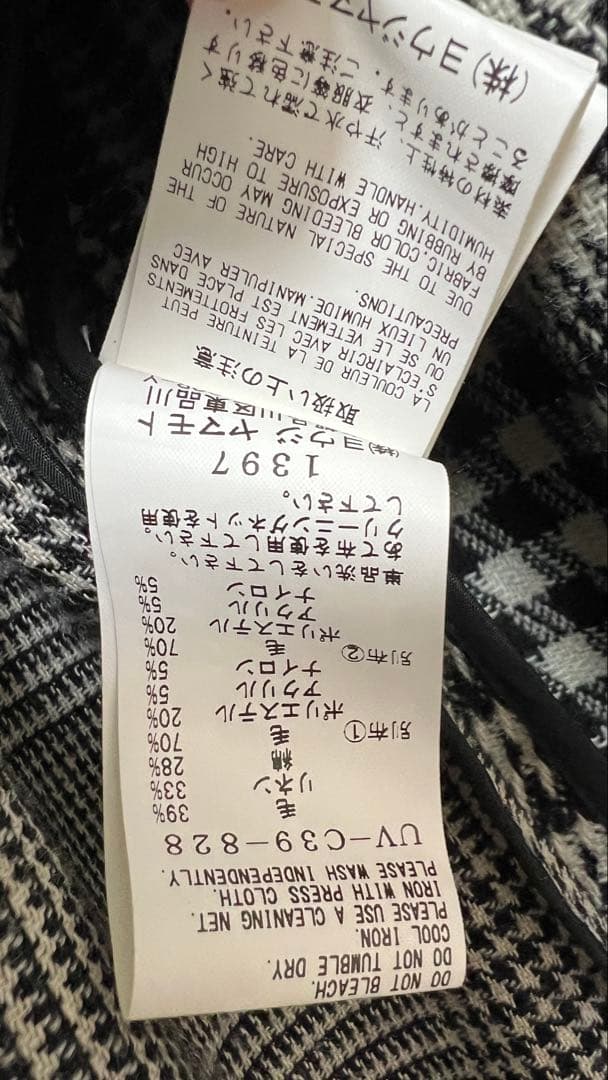 DO NOT BLEACH.
DO NOT TUMBLE DRY.
COOL IRON.
PLEASE USE A CLEANING NET.
IRON WITH PRESS CLOTH.
PLEASE WASH INDEPENDENTLY.
UV-C39-828
毛 39%
リネン 33%
綿 28%
別布① 毛 70%
ポリエステル 20%
アクリル 5%
ナイロン 5%
別布② 毛 70%
ポリエステル 20%
アクリル 5%
ナイロン 5%
単品洗いをして下さい。
あて布を使用して下さい。
クリーニングネットを使用
して下さい。
1397
㈱ヨウジ ヤマモト
品川区東品川
取扱い上の注意
LA COULEUR DE LA TEINTURE PEUT
S'ECLAIRCIR AVEC LES FROTTEMENTS
OU SE LE VETEMENT EST PLACE DANS
UN LIEUX HUMIDE.MANIPULER AVEC
PRECAUTIONS.
DUE TO THE SPECIAL NATURE OF THE
FABRIC.COLOR BLEEDING MAY OCCUR
BY RUBBING OR EXPOSURE TO HIGH
HUMIDITY.HANDLE WITH CARE.
素材の特性上、汗や水で濡れて強く
摩擦されますと、衣服等に色移りす
ることがあります。ご注意下さい。
(株)ヨウジヤマ